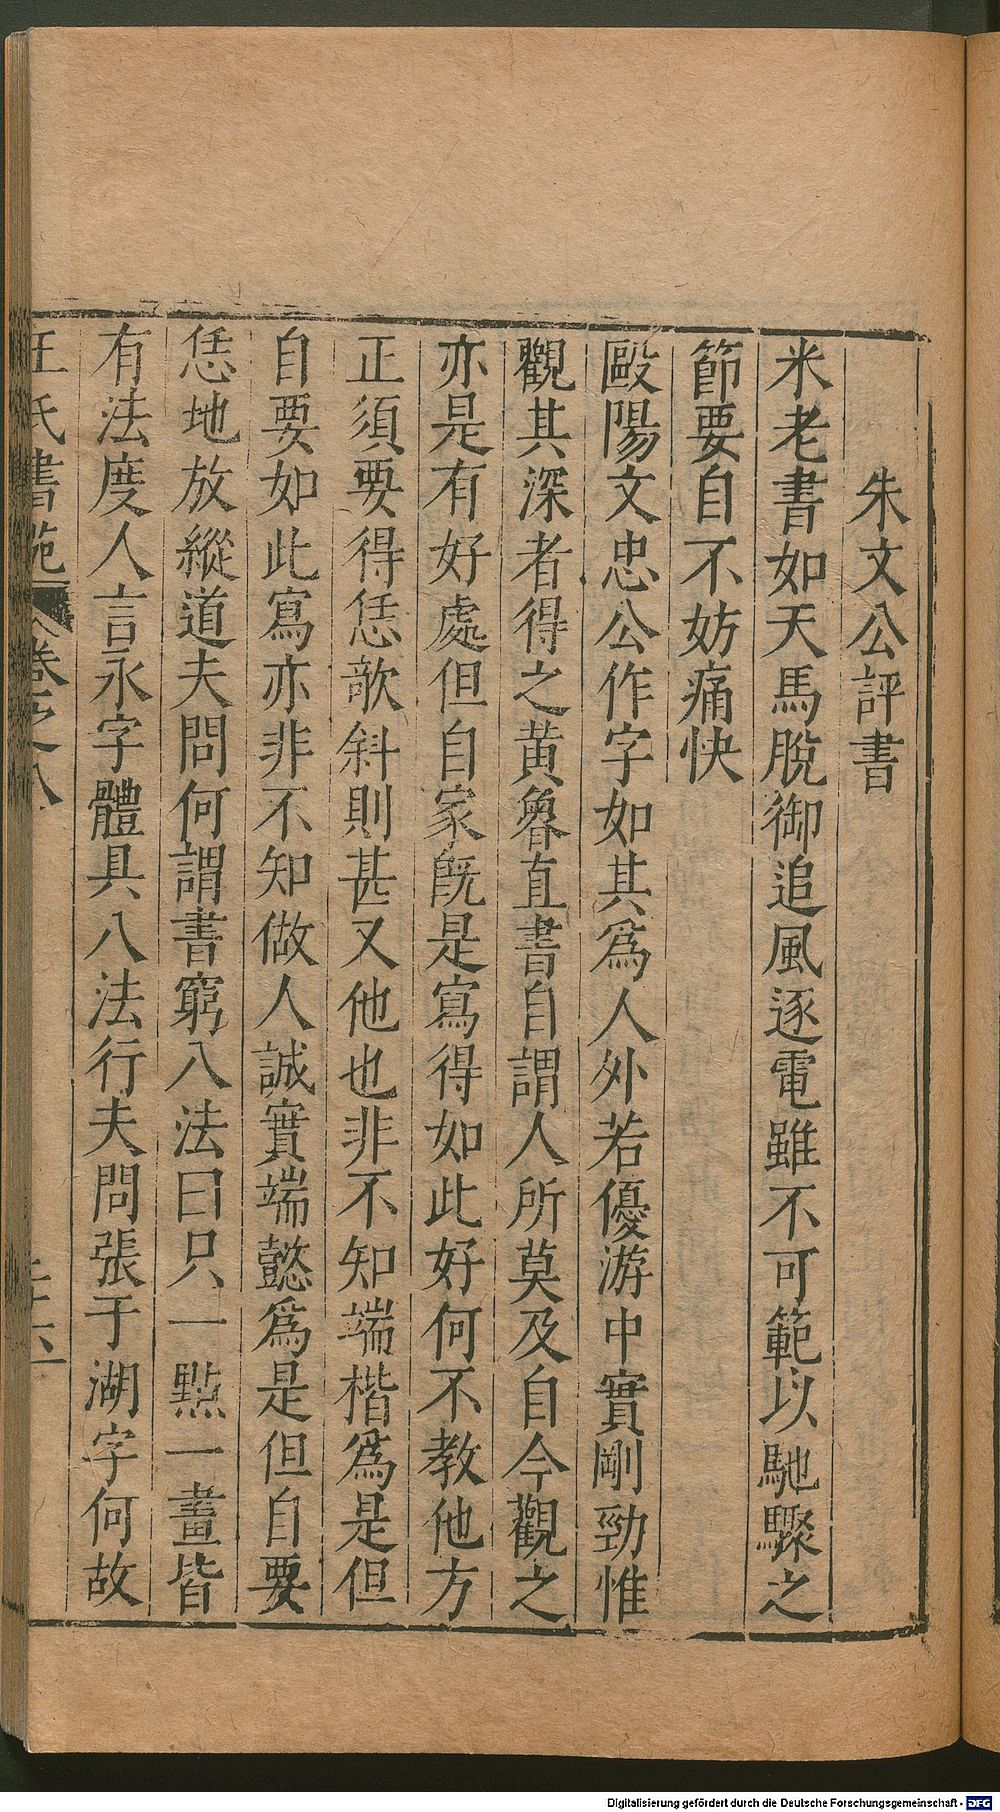 朱文公評書
米老書如天馬脫御追風逐電雖不可範以馳驟之
節要自不妨痛快
歐陽文忠公作字如其爲人外若優游中實剛勁惟
觀其深者得之黄魯直書自謂人所莫及自今觀之
亦是有好處但自家既是寫得如此好何不教他方
正須要得恁欹斜則甚又他也非不知端楷爲是但
自要如此寫亦非不知做人誠實端懿爲是但自要
恁地放縱道夫問何謂書窮八法曰只一㸃一畫皆
有法度人言永字體具八法行夫問張于湖字何故
王氏書苑 卷之八
Digitalisierung gefördert durch die Deutsche Forschungsgemeinschaft - DFG